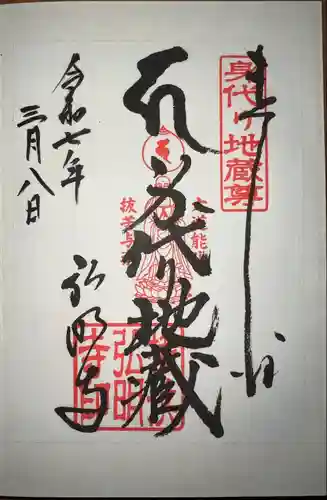 奉拝
身代り地蔵尊
身代り地蔵
抜苦与
大慈能
弘明寺
令和七年
三月八日